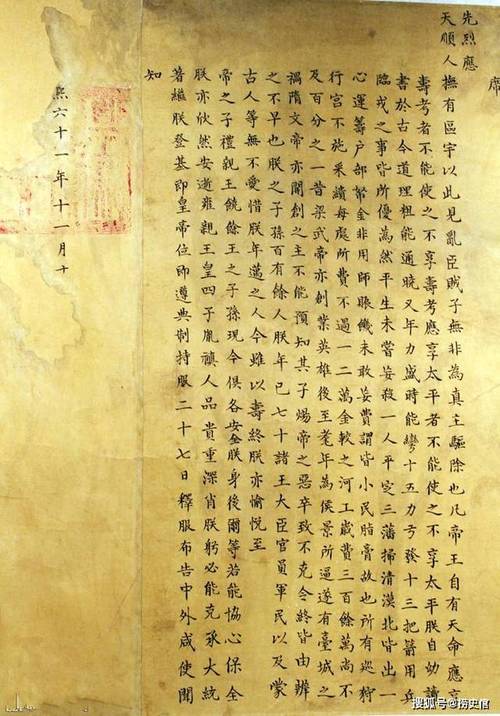 席
先烈應
天順人撫有區宇以此見亂臣賊子無非為真主驅除也凡帝王自有天命應享
壽考者不能使之不享壽考應享太平者不能使之不享太平朕自幼讀
書於古今道理粗能通曉又年力盛時能彎十五力弓發十三把箭用兵
臨戎之事皆所優為然平生未嘗妄殺一人平定三藩掃清漠北皆出一
心運籌户部帑金非用師賑饑未敢妄費謂皆小民脂膏故也所有巡狩
行宮不施采繢每處所費不過一二萬金較之河工歲費三百餘萬尚不
及百分之一昔梁武帝亦創業英雄後至耄年為侯景所逼遂有臺城之
禍隋文帝亦開創之主不能預知其子煬帝之惡卒致不克令終皆由辨
之不早也朕之子孫百有餘人朕年已七十諸王大臣官員軍民以及蒙
古人等無不愛惜朕年邁之人今雖以壽終朕亦愉悅至
帝之子禮親王饒餘王之子孫現今俱各安全朕身後爾等若能協心保全
朕亦欣然安逝雍親王皇四子胤禛人品貴重深肖朕躬必能克承大統
著繼朕登基即皇帝位即遵典制持服二十七日釋服布告中外咸使聞
知
熙六十一年十一月十
搜狐号@捞史僧